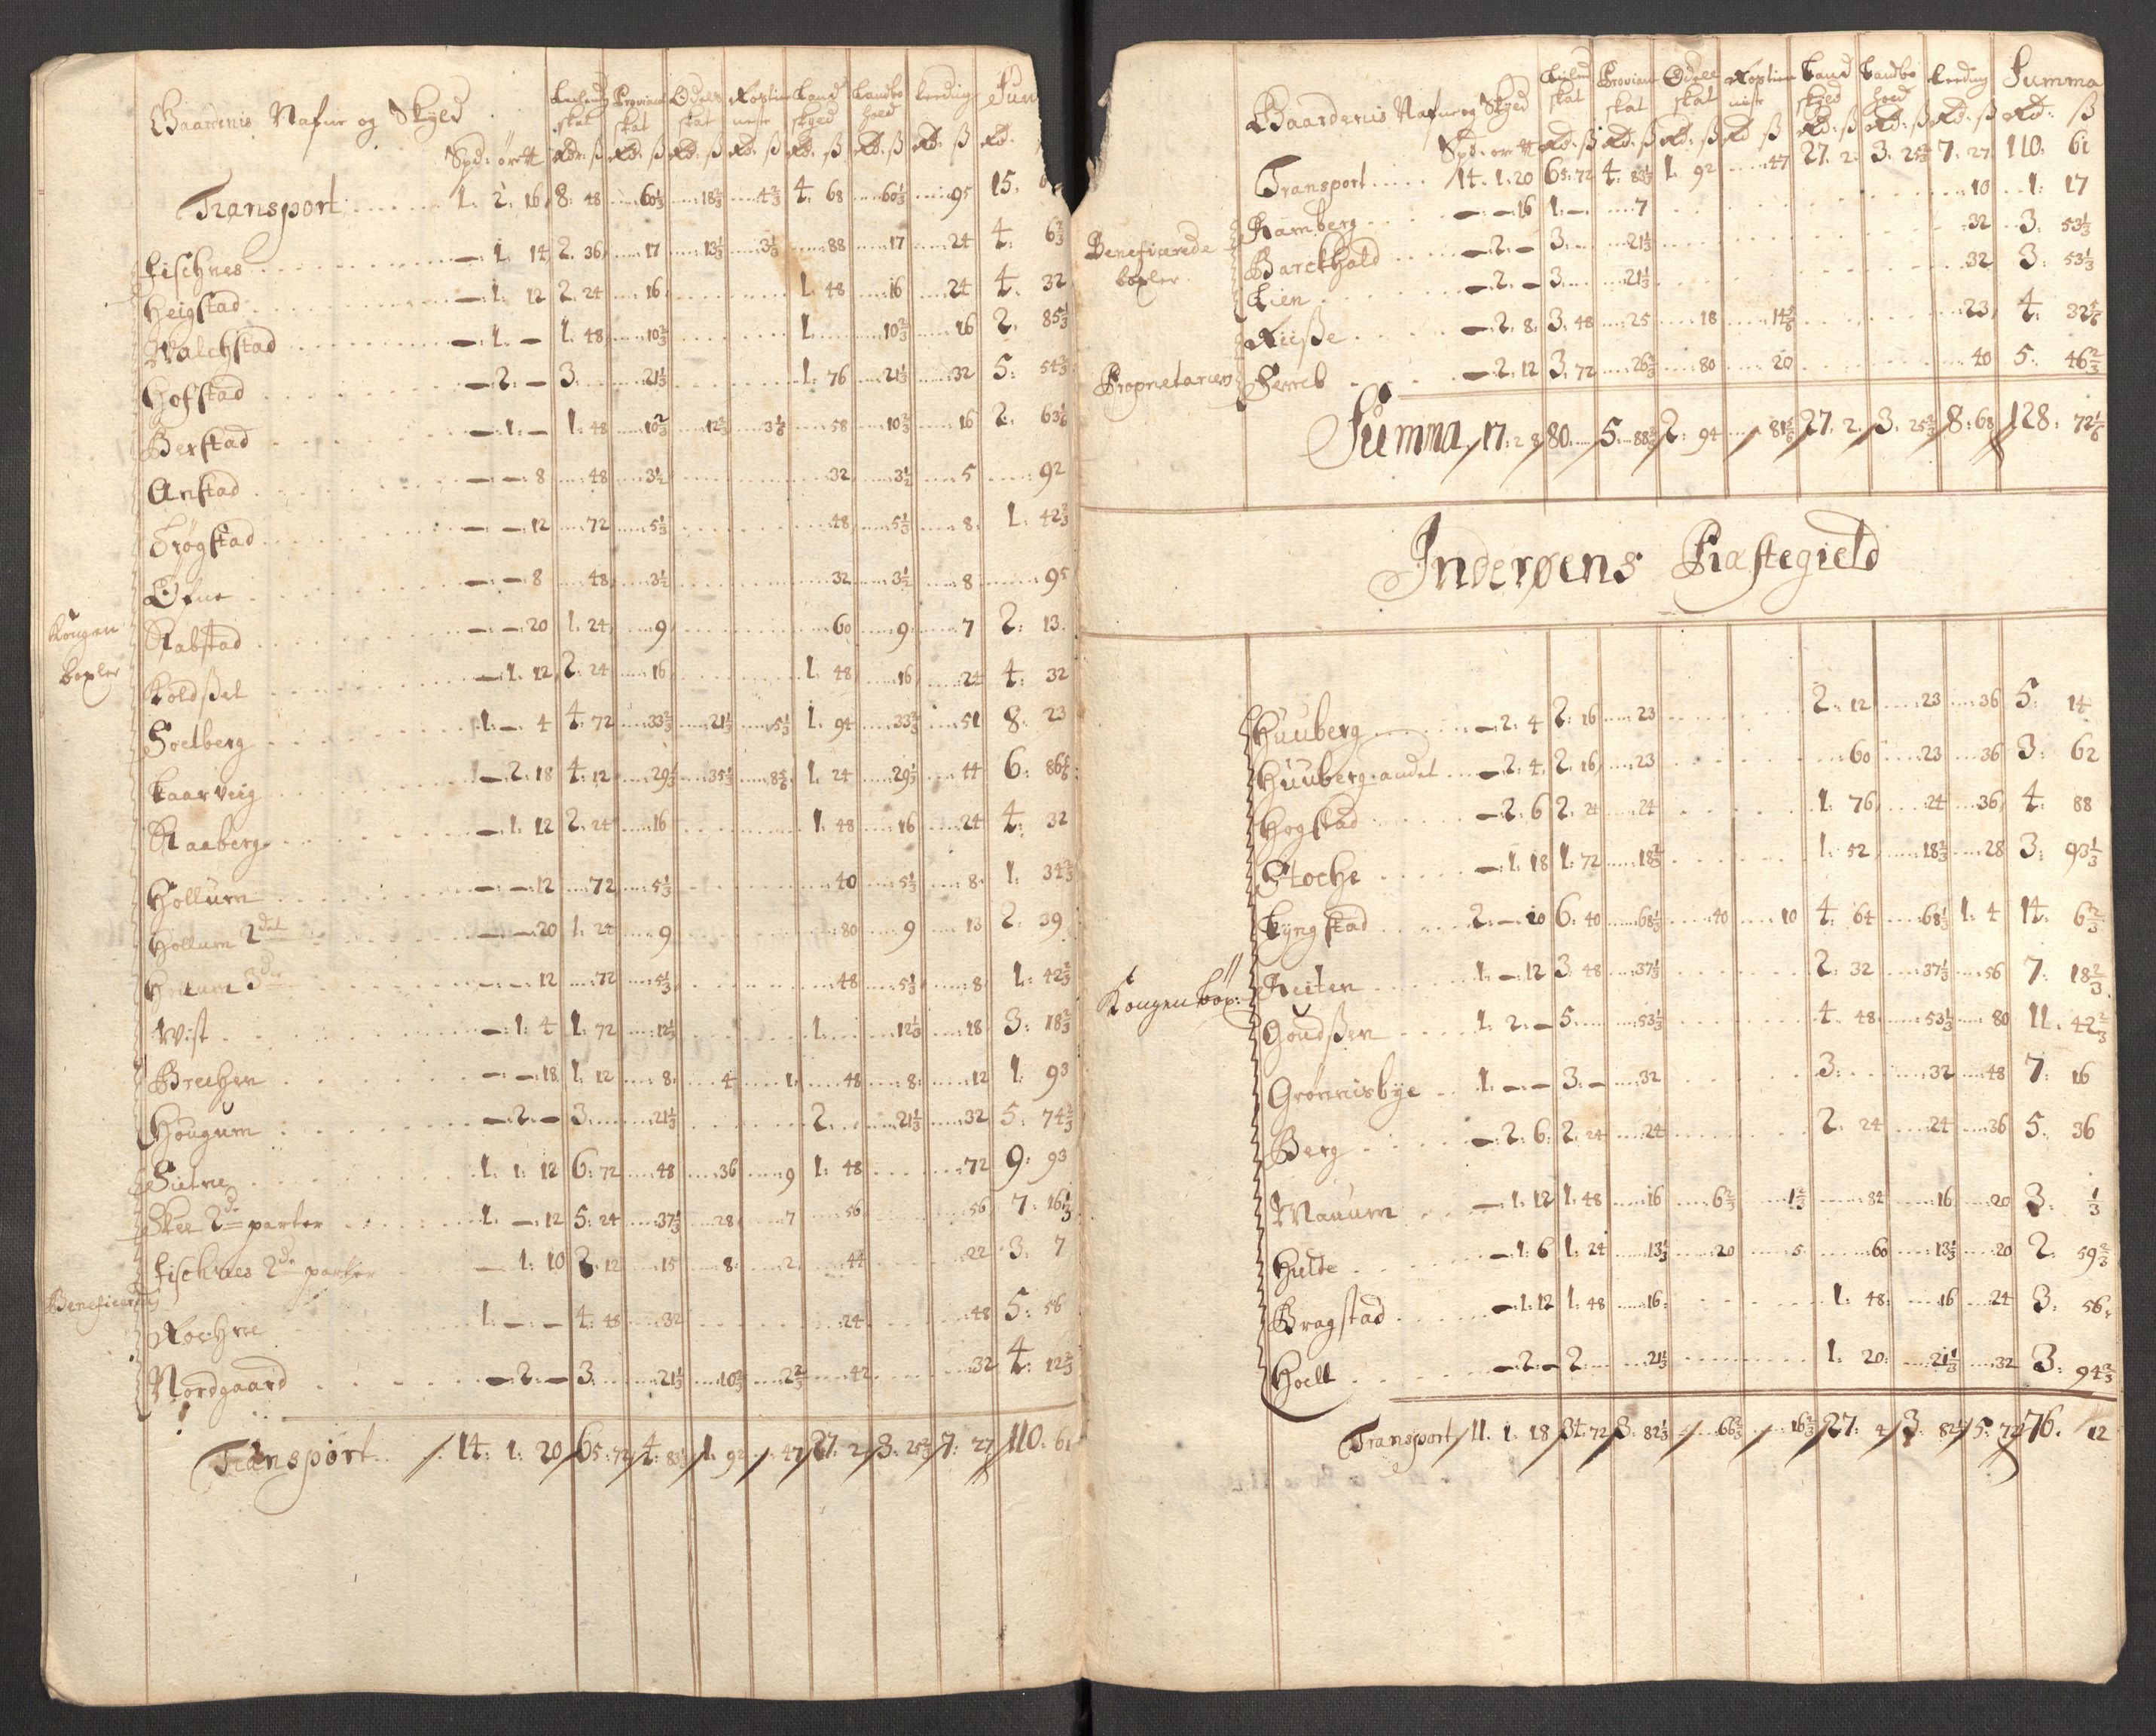 Gaardenis Nafne og Skyld Leilend skat Proviant skat Odels skat Rostieneste Land skyld Landbo hold Leeding Sum
Spd: ör # Rdr: ß Rd: ß Rd: ß Rd: ß Rd: ß Rd: ß Rd: ß Rd:
Transport 1: 2: 16 8: 48 60½ 18⅔ 4⅔ 4: 68 60½ 95 15:
Fischnes 1: 14 2: 36 17 13⅓ 3⅓ 88 17 24 4: 6⅔
Heigstad 1: 12 2: 24 16 1: 48 16 24 4: 32
Walchstad 1: 1: 48 10⅔ 1: 10⅔ 16 2: 85⅓
Hofstad 2: 3: 21⅓ 1: 76 21⅓ 32 5: 54⅔
Berstad 1: 1: 48 10⅔ 12⅔ 3⅙ 58 10⅔ 16 2: 63⅙
Anstad 8 48 3½ 32 3½ 5 92
Trøgstad 12 72 5⅓ 48 5⅓ 8 1: 42⅔
Öfne 8 48 3½ 32 3½ 8 95
Kongen boxler
Rabstad 20 1: 24 9 60 9 7 2: 13
Koldßel 1: 12 2: 24 16 1: 48 16 24 4: 32
Soelberg 1: 4 4: 72 33⅔ 21⅓ 5⅓ 1: 94 33⅔ 51 8: 23
Kaarveig 2: 18 4: 12 29⅓ 35⅓ 8⅚ 1: 24 29⅓ 44 6: 86⅚
Raaberg 1: 12 2: 24 16 1: 48 16 24 4: 32
Hollum 12 72 5⅓ 40 5⅓ 8 1: 34⅔
Hollum 2det 20 1: 24 9 80 9 13 2: 39
Hollum 3die 12 72 5⅓ 48 5⅓ 8 1: 42⅔
Wist 1: 4 1: 72 12⅓ 1: 12⅓ 18 3: 18⅔
Brechen 18 1: 12 8 4 1 48 8 12 1: 93
Hougum 2: 3: 21⅓ 2: 21⅓ 32 5: 74⅔
Sietne 1: 1: 12 6: 72 48 36 9 1: 48 72 9: 93
Skee 2de parter 1: 12 5: 24 37⅓ 28 7 56 56 7: 16⅓
Fischnes 2de parter 1: 10 2: 12 15 8 2 44 22 3: 7
Beneficerede
Roehne 1: 4: 48 32 24 48 5: 56
Nordgaard 2: 3: 21⅓ 10⅔ 2⅔ 42 32 4: 12⅔
Transport 14: 1: 20 65: 72 4: 83⅓ 1: 92 47 27: 2 3: 25⅔ 7: 27 110: 61
Gaardenis Nafne og Skyld Leilend skat Proviant skat Odels skat Rostieneste Land skyld Landbo hold Leeding Summa
Spd: ör # Rd: ß Rd: ß Rd: ß Rd: ß Rd: ß Rd: ß Rd: ß Rd: ß
Transport 14: 1: 20 65: 72 4: 83⅓ 1: 92 47 27: 2 3: 25⅔ 7: 27 110: 61
Beneficerede boxler
Ramberg 16 1: 7 10 1: 17
Barckhald 2: 3: 21⅓ 32 3: 53⅓
Lien 2: 3: 21⅓ 32 3: 53⅓
Riiße 2: 8 3: 48 25 18 14⅚ 23 4: 32⅚
Proprietarier
Ferreb 2: 12 3: 72 26⅔ 80 20 40 5: 46⅔
Summa 17: 2 8 80 5: 88⅔ 2: 94 81⅚ 27: 2 3: 25⅔ 8: 68 128: 72⅙
Inderøens Præstegield
Huuberg 2: 4 2: 16 23 2: 12 23 36 5: 14
Huuberg andet 2: 4 2: 16 23 60 23 36 3: 62
Hogstad 2: 6 2: 24 24 1: 76 24 36 4: 88
Stoche 1: 18 1: 72 18⅔ 1: 52 18⅔ 28 3: 93⅓
Lyngstad 2: 10 6: 40 68⅓ 40 10 4: 64 68⅓ 1: 4 14: 6⅔
Kongen box:
Reiten 1: 12 3: 48 37⅓ 2: 32 37⅓ 56 7: 18⅔
Goudßen 1: 2: 5: 53⅓ 4: 48 53⅓ 80 11: 42⅔
Grønnisbye 1: 3: 32 3: 32 48 7: 16
Berg 2: 6 2: 24 24 2: 24 24 36 5: 36
Mauum 1: 12 1: 48 16 6⅔ 1⅔ 82 16 20 3: ⅓
Hulde 1: 6 1: 24 13⅓ 20 5 60 13⅓ 20 2: 59⅔
Bragstad 1: 12 1: 48 16 1: 48 16 24 3: 56
Hoelt 2: 2: 21⅓ 1: 20 21⅓ 32 3: 94⅔
Transport 11: 1: 18 34: 72 3: 82⅓ 66⅔ 16⅔ 27: 4 3: 82⅓ 5: 72 76: 12